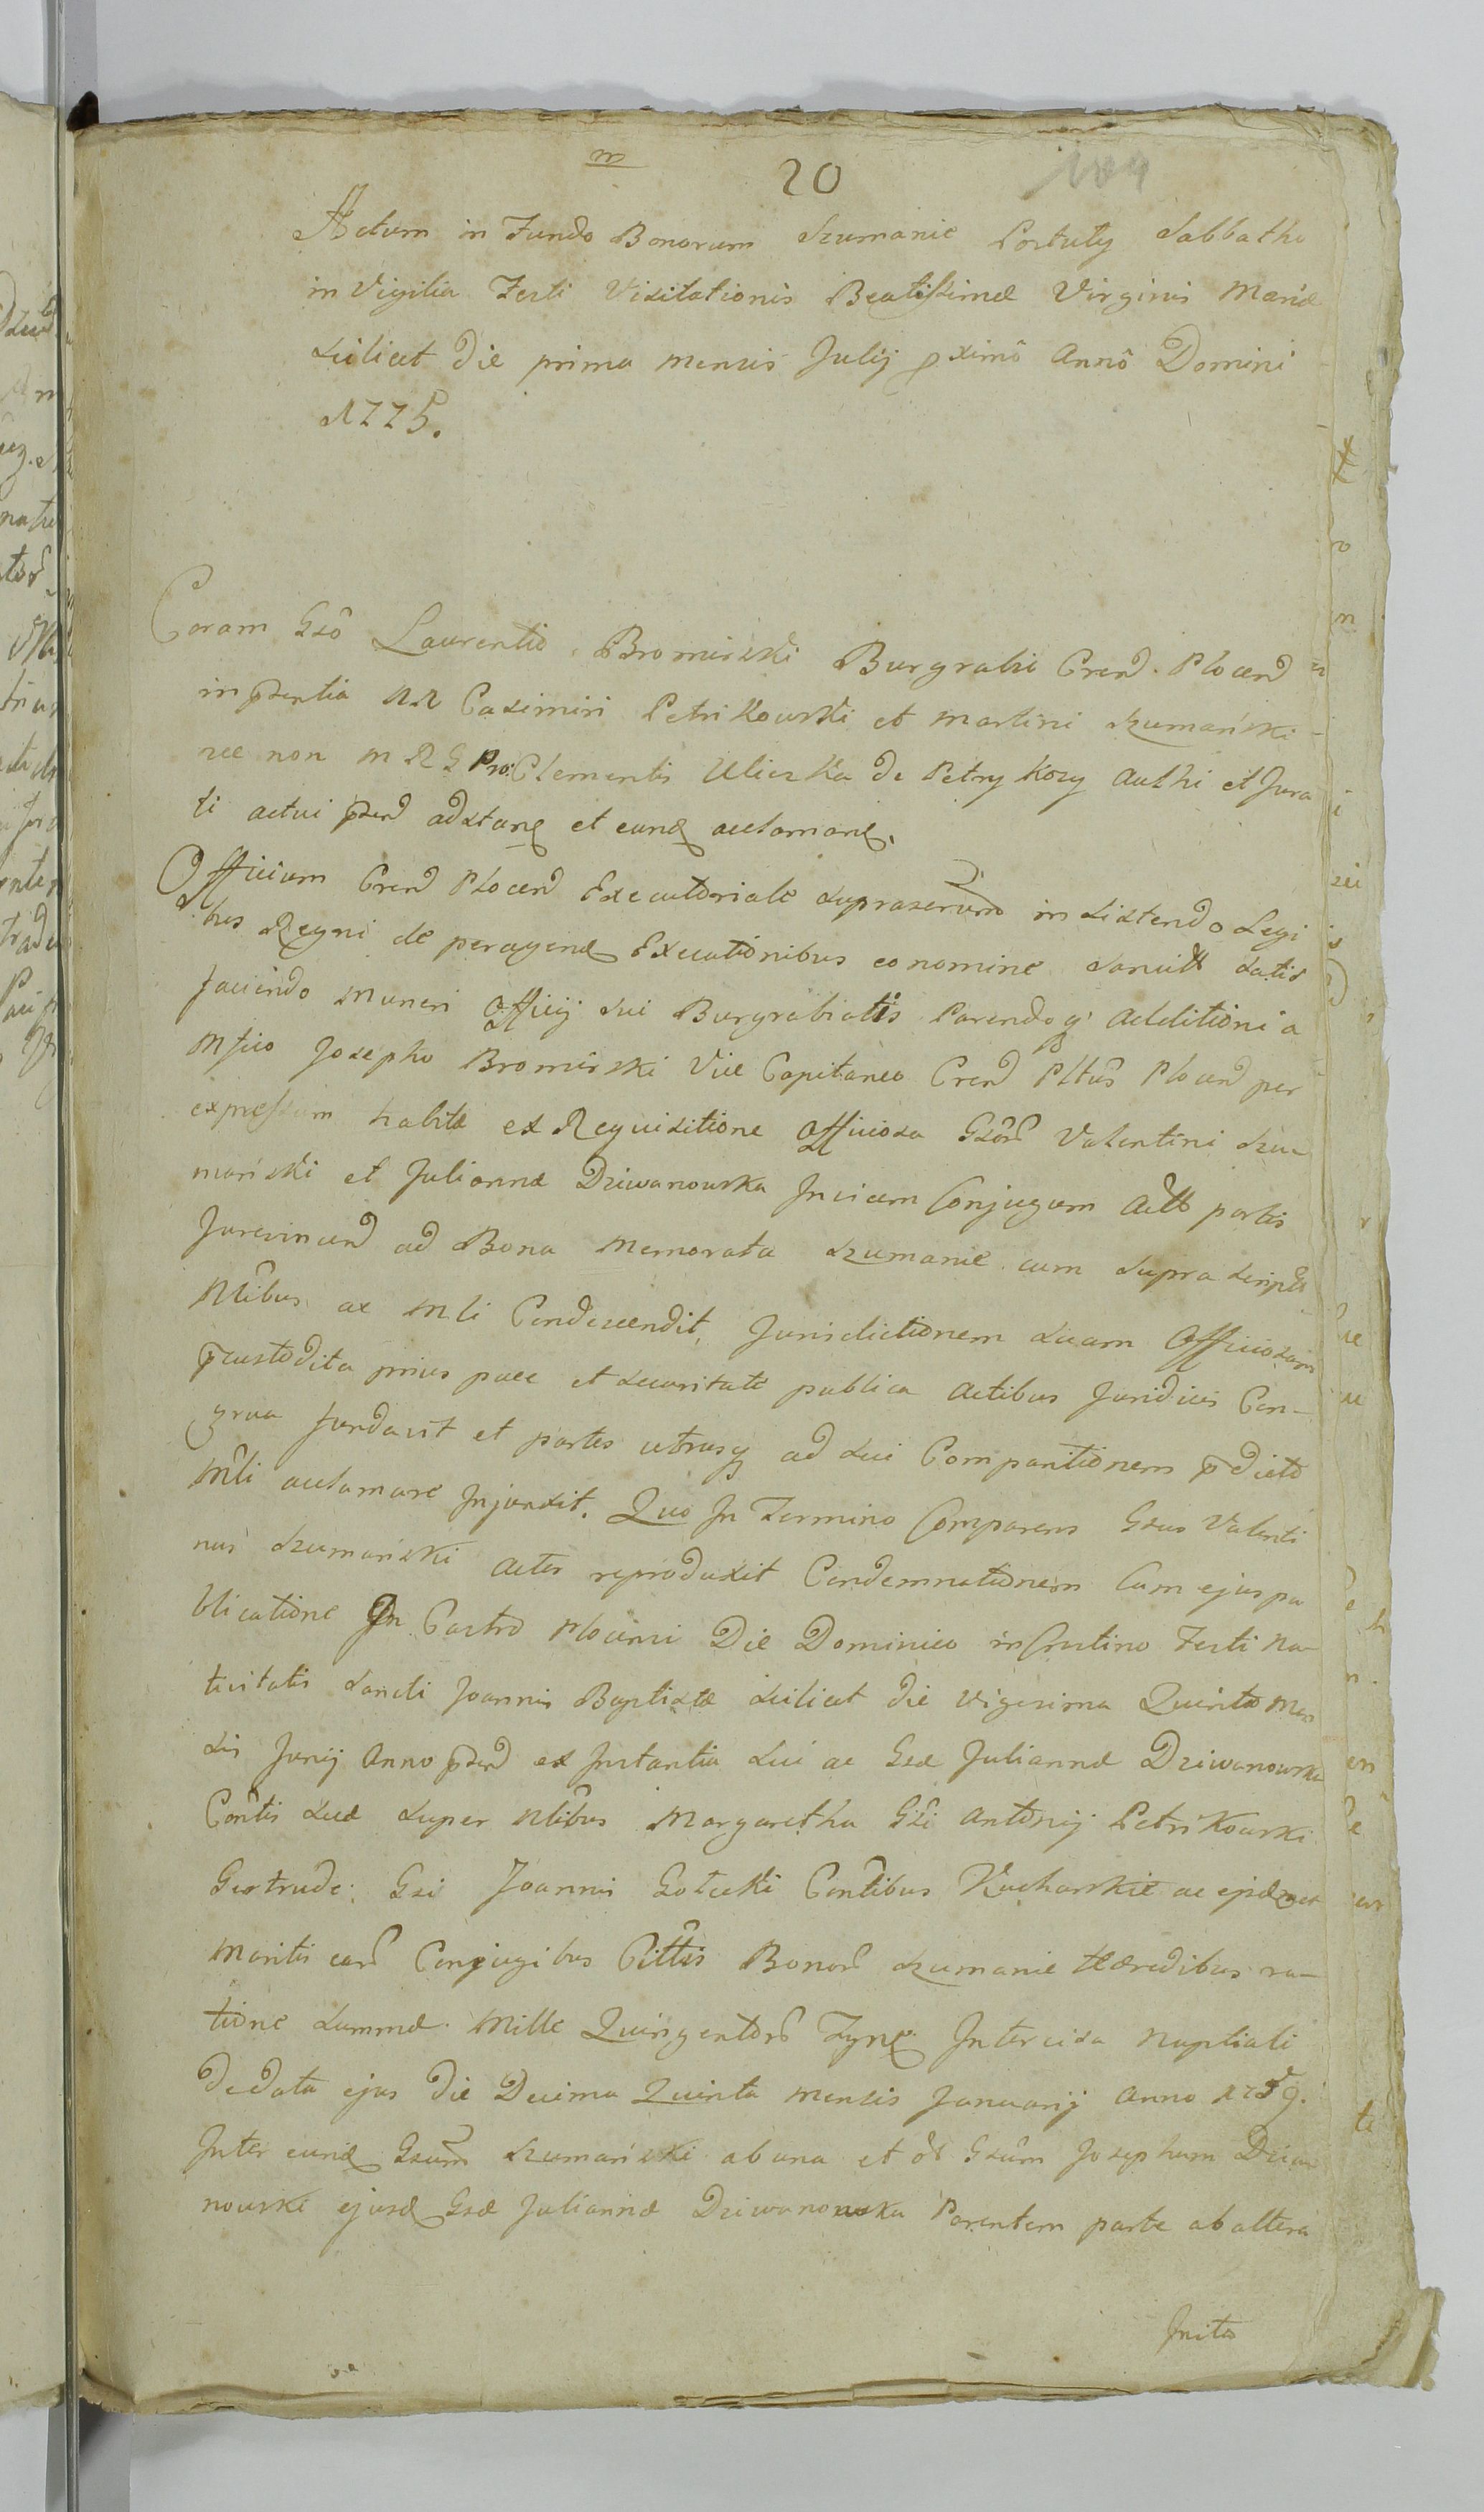 m
20
Actum in Fundo Bonorum Szumanie Pustuły Sabbatho
in Vigilia Festi Visitationis Beatissimæ Virginis Mariæ
scilicet Die prima mensis Julij Annô Domini
1775.
Coram Gsô Laurentio Bromirski Burgrabio Cren͠d Plocen͠d
in p̄sentia NN Casimiri Petrikowski et Martini Szumański
nec non M R G Pro: Clementis Uliczka de Petrykozy Authi et Jura
ti actui p̄sen͠d adstanę et eunę aclamanę.
Officium Cren͠d Plocen͠d Executoriale in sistendo Legi
bus Regni de peragenę Executionibus eo nomine satis
faciendo muneri Officij sui Burgrabiatis Parendoq̨ Additioni a
Mfico Josepho Bromirski Vice Capitaneo Cren͠d Pltus̃ Plocen͠d per
expressum habitæ ex Requisitione Officiosa Gsor͠ Valentini Szu-
mański et Juliannæ Dziwanowska Invicem Conjugum partis
Jurevincen͠d ad Bona memorata Szumanie cum supra
Nl͠ibus ac Mli Condescendit, Jurisdictionem suam Officiosam
p̄custodita prius pace et securitate publica Actibus Juridicis Con-
grua fundavit et partes utrasq̨ ad sui Comparitionem p̄dicto
Ml͠i aclamare Injunxit. Quo In Termino Comparens Gsus Valenti
nus Szumański Actor reproduxit Condemnationem Cum ejus pu
blicatione In Castro Plocensi Die Dominico in Crastino Festi Na-
tivitatis Sancti Joannis Baptistæ scilicet Die vigesima Quinta Men
sis Junij Anno p̄sen͠d ex Instantia sui ac Gsæ Juliannæ Dziwanowska
Con͠tis suæ super Nl͠ibus Margaretha Gsi͠ Antonij Petrikowski
Gertrude: Gsi Joannis Gołecki Con͠tibus Kucharskie ac
Maritis ear͠ Conjugibus Cittis͠ Bonor͠ Szumanie Hæredibus ra-
tione summæ Mille Quingentor͠ Tynę Intercisa Nuptiali
De data ejus Die Decima Quinta mensis Januarij Anno 1759.
Inter eunę Gsum͠ Szumański ab una et Gsum͠ Josephum Dziwa
nowski ejusę Gsæ Juliannæ Dziwanowska Parentem parte ab altera
Inita